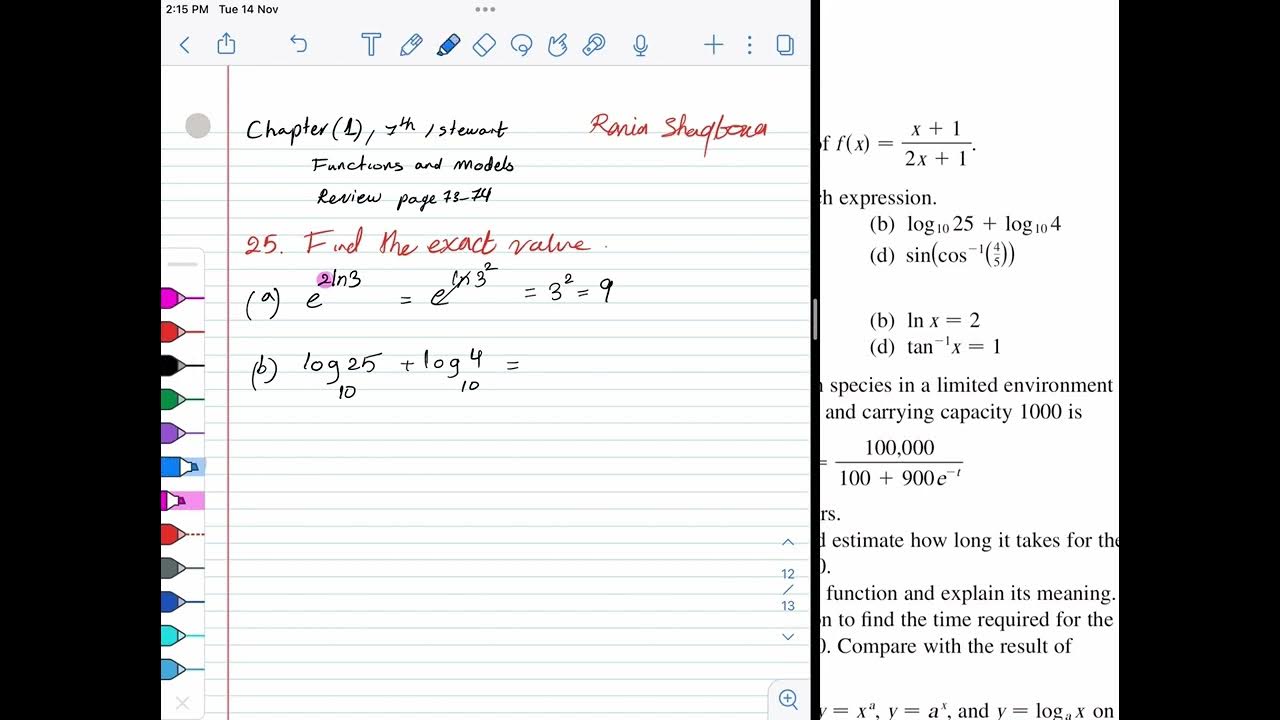 2:15 PM Tue 14 Nov
Chapter (1), 7th, stewart
Rania Shaqboua
Functions and models
Review page 73-74
25. Find the exact value.
(a) e^{2ln3} = e^{ln3^2} = 3^2 = 9
(b) log_{10} 25 + log_{10} 4 =
12
13
of f(x) = \frac{x + 1}{2x + 1}.
ch expression.
(b) log_{10} 25 + log_{10} 4
(d) sin(cos^{-1}(\frac{4}{5}))
(b) ln x = 2
(d) tan^{-1}x = 1
species in a limited environment
and carrying capacity 1000 is
= \frac{100,000}{100 + 900e^{-t}}
rs.
d estimate how long it takes for the
0.
function and explain its meaning.
on to find the time required for the
0. Compare with the result of
y = x^a, y = a^x, and y = log_a x on